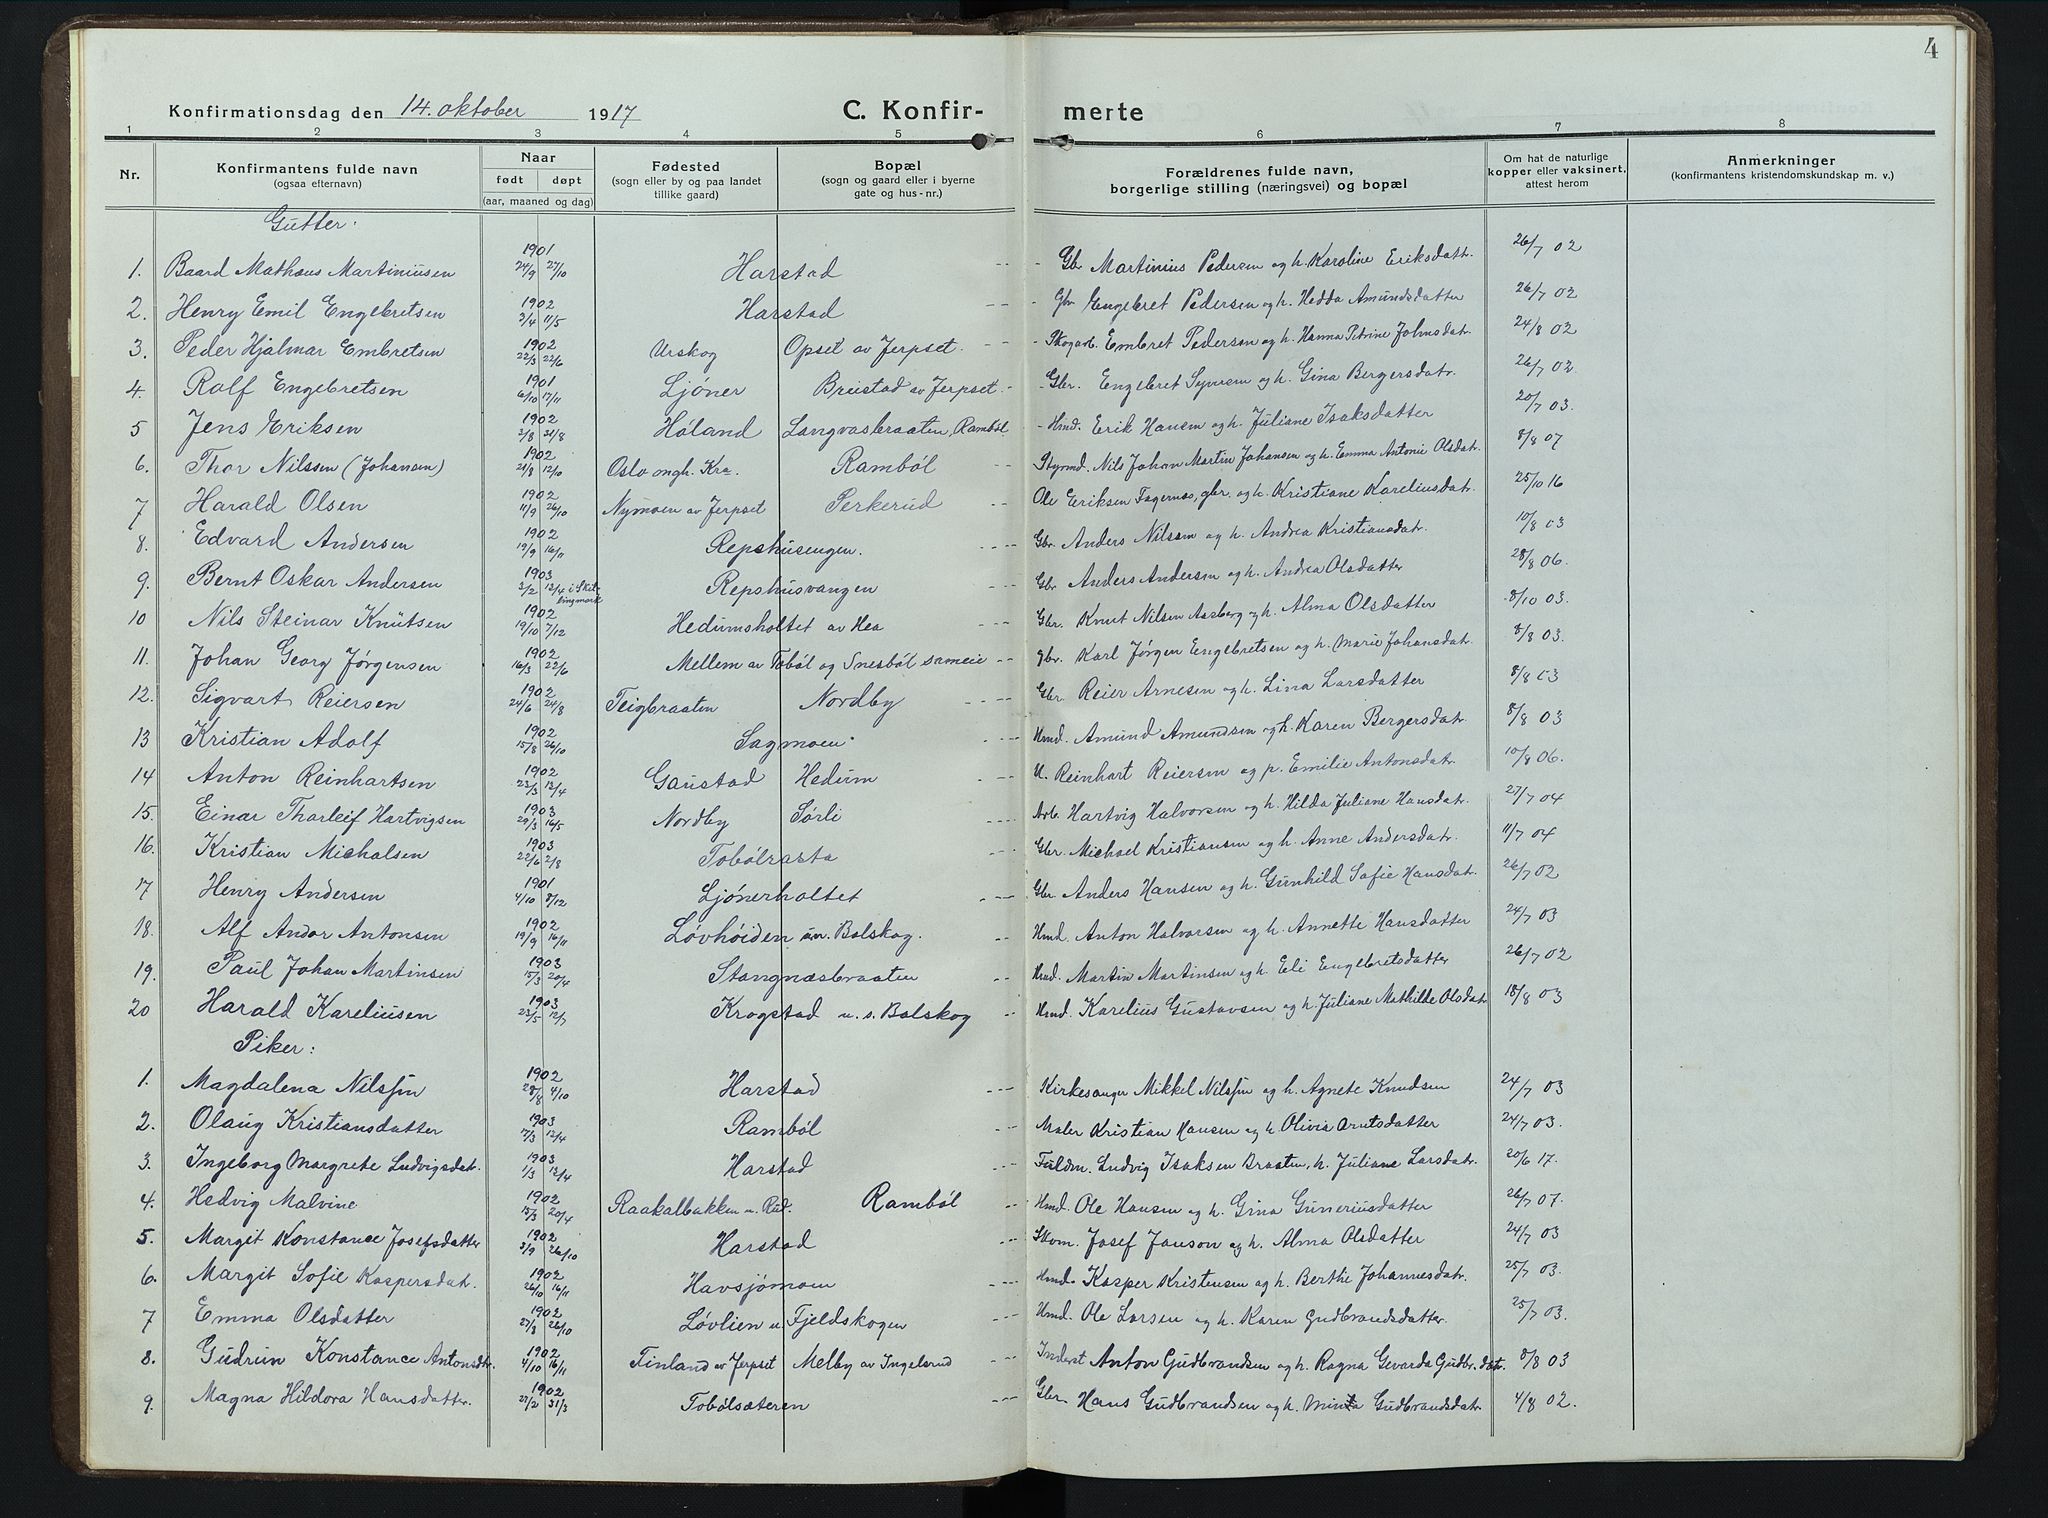 4
Konfirmationsdag den 14. oktober 1917 C. Konfir- merte
1 2 3 4 5 6 7 8
Nr. Konfirmantens fulde navn (ogsaa efternavn) Naar født døpt (aar, maaned og dag) Fødested (sogn eller by og paa landet tillike gaard) Bopæl (sogn og gaard eller i byerne gate og hus-nr.) Forældrenes fulde navn, borgerlige stilling (næringsvei) og bopæl Om hat de naturlige kopper eller vaksinert, attest herom Anmerkninger (konfirmantens kristendomskundskap m. v.)
Gutter.
1. Baard Mathæus Martiniusen 1901 24/9 27/10 Harstad Gbr Martinius Pedersen og h. Karoline Eriksdatr. 26/7 02
2. Henry Emil Engebretsen 1902 3/4 11/5 Harstad Gbr Engebret Pedersen og h. Hedda Amundsdatter 26/7 02
3. Peder Hjalmar Embretsen 1902 22/3 22/6 Urskog Opset av Jerpset. Skogarb. Embret Pedersen og h. Hanna Petrine Johnsdatr. 24/8 02
4. Rolf Engebretsen 1901 6/10 17/11 Ljøner Brustad av Jerpset. Gbr. Engebret Syversen og h. Gina Bergersdatr. 26/7 02
5 Jens Eriksen 1902 2/8 31/8 Høland Langvasbraaten, Rambøl Hmd. Erik Hansen og h. Juliane Isaksdatter 20/7 03.
6. Thor Nilssen (Johansen) 1902 21/8 12/10 Oslo mgh. Kra. Rambøl Styrmd. Nils Johan Martin Johansen og h. Emma Antonie Olsdatr. 8/8 07
7 Harald Olsen 1902 11/9 26/10 Nymoen av Jerpset Perkerud Ole Eriksen Fagernæs, gbr. og h. Kristiane Kareliusdatr. 25/10 16
8. Edvard Andersen 1902 19/9 16/11 Repshusengen. Gbr Anders Nilssen og h. Andrea Kristiansdatr. 10/8 03
9. Bernt Oskar Andersen 1903 3/2 13/4 i Skillingmark Repshusvangen Gbr Anders Andersen og h. Andrea Olsdatter 28/8 06.
10 Nils Steinar Knutsen 1902 19/10 7/12 Hedumsholtet av Hea Gbr. Knut Nilsen Aasberg og h. Alma Olsdatter 8/10 03.
11. Johan Georg Jørgensen 1902 16/3 22/6 Mellem av Tobøl og Snesbøl sameie gbr. Karl Jørgen Engebretsen og h. Marie Johansdatr. 8/8 03.
12. Sigvart Reiersen 1902 24/6 24/8 Teigbraaten Nordby Gbr Reier Arnesen og h. Lina Larsdatter 8/8 03
13 Kristian Adolf 1902 15/8 26/10 Sagmoen Hmd. Amund Amundsen og h. Karen Bergersdatr. 8/8 03
14 Anton Reinhartsen 1902 23/3 13/4 Gaustad Hedum U. Reinhart Reiersen og p. Emilie Antonsdatr. 10/8 06.
15. Einar Thorleif Hartvigsen 1903 29/3 16/5 Nordby Sørli Arb. Hartvig Halvorsen og h. Hilda Juliane Hansdatr. 27/7 04
16. Kristian Michalsen 1903 22/6 2/8 Tobølrasta Gbr. Michael Kristiansen og h. Anne Andersdatr. 11/7 04
17 Henry Andersen 1901 4/10 8/12 Ljønerholtet Gbr. Anders Hansen og h. Gunhild Sofie Hansdatr. 26/7 02
18. Alf Andor Antonsen 1902 19/9 16/11 Løvhøiden un. Bolskog. Hmd. Anton Halvorsen og h. Annette Hansdatter 24/7 03
19. Paul Johan Martinsen 1903 15/3 20/4 Stangnæsbraaten Hmd. Martin Martinsen og h. Eli Engebretsdatter 26/7 02
20 Harald Kareliusen 1903 23/5 12/7 Krogstad u. s. Bolskog Hmd. Karelius Gustavsen og h. Juliane Mathilde Olsdatr. 18/8 03
Piker:
1. Magdalena Nilssen 1902 28/8 4/10 Harstad Kirkesanger Mikkel Nilssen og h. Agnete Knudsen 24/7 03
2. Olaug Kristiansdatter 1903 17/3 12/4 Rambøl Maler Kristian Hansen og h. Olivia Arntsdatter 24/7 03.
3. Ingeborg Margrete Ludvigsdatr. 1903 1/3 13/4 Harstad Fuldm. Ludvig Isaksen Braaten, h. Juliane Larsdatr. 20/6 17.
4. Hedvig Malvine 1902 15/3 20/4 Raakalbakken u. Rud. Rambøl Hmd. Ole Hansen og h. Gina Guneriusdatter 26/7 07.
5. Margit Konstance Josefsdatter 1902 3/9 26/10 Harstad Skom. Josef Janson og h. Alma Olsdatter 24/7 03
6. Margit Sofie Kaspersdatr. 1902 26/10 16/11 Havsjømoen Hmd. Kasper Kristensen og h. Berthe Johannesdatr. 25/7 03.
7 Emma Olsdatter 1902 27/8 26/10 Løvlien u. Fjeldskogen Hmd. Ole Larsen og h. Karen Gudbrandsdatter. 25/7 03.
8. Gudrun Konstance Antonsdtr. 1902 4/10 16/11 Finland av Jerpset Melby av Ingelsrud Inderst Anton Gudbrandsen og h. Ragna Gevarda Gudbr.datr. 8/8 03
9. Magna Hildora Hansdatter. 1902 27/2 31/3 Tobølsæteren Gbr Hans Gudbrandsen og h. Mina Gudbrandsdatr. 4/8 02.